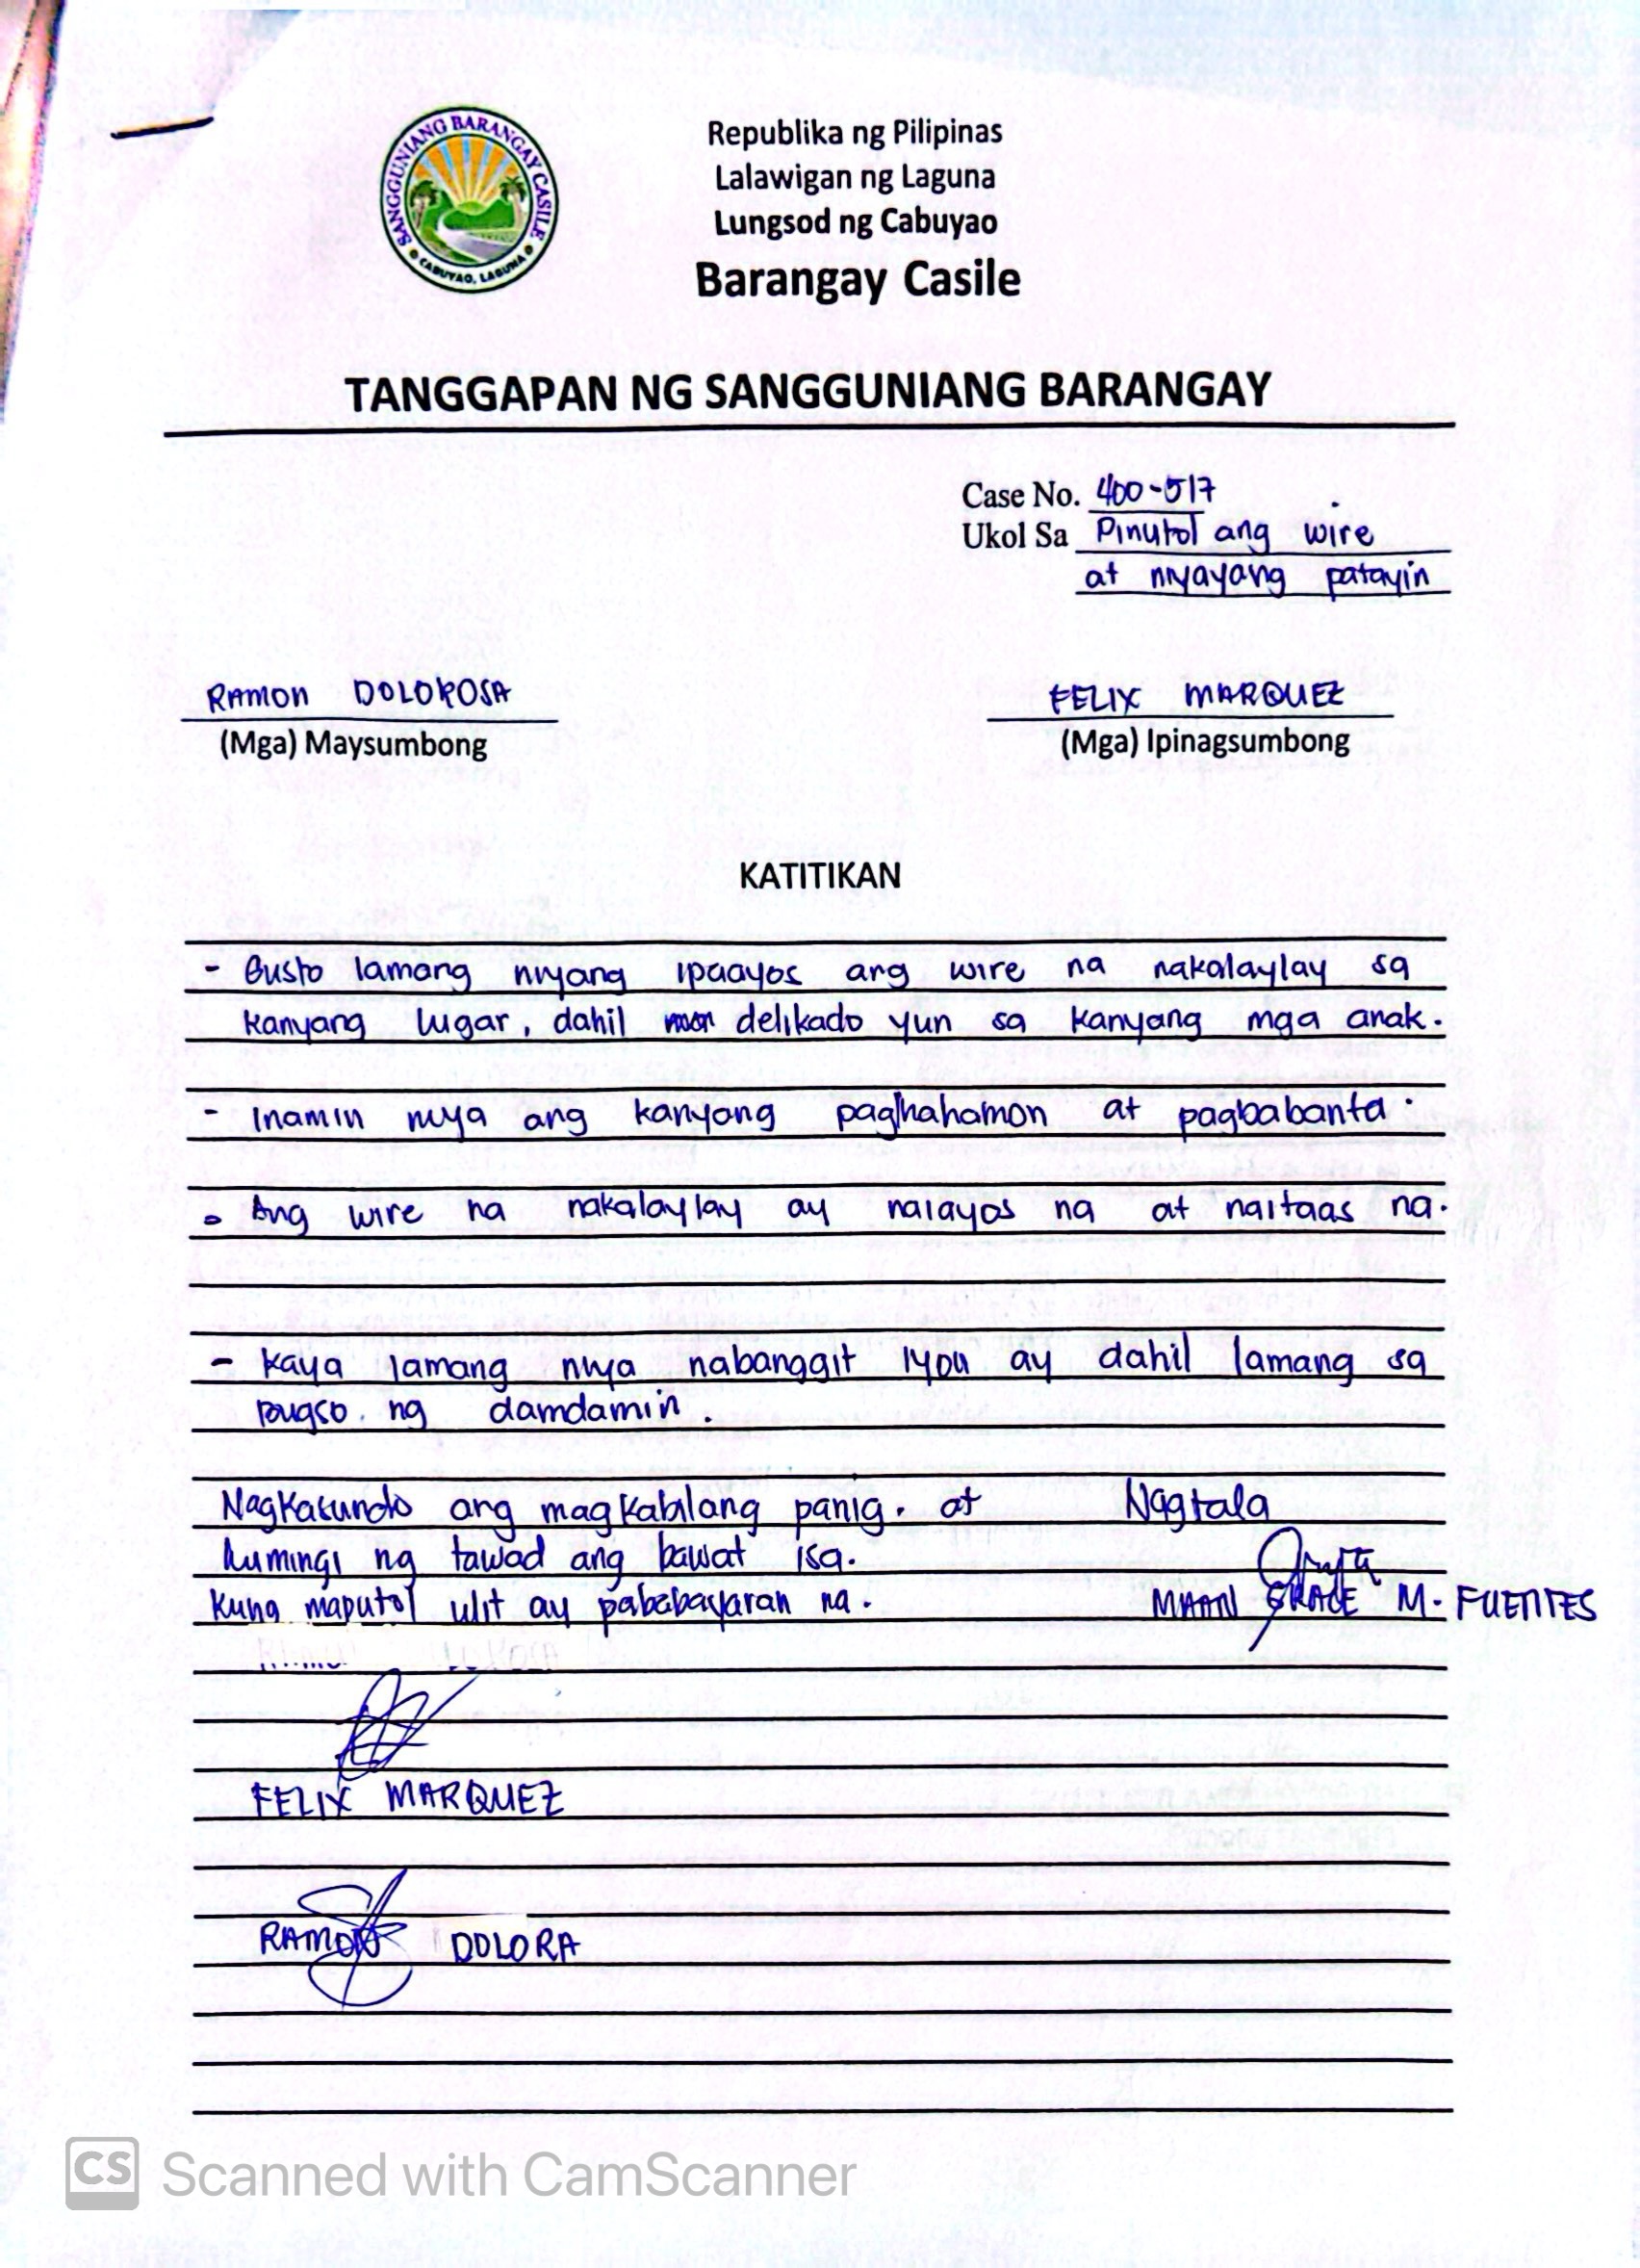 SANGGUNIANG BARANGAY CASILE
CABUYAO, LAGUNA
Republika ng Pilipinas
Lalawigan ng Laguna
Lungsod ng Cabuyao
Barangay Casile
TANGGAPAN NG SANGGUNIANG BARANGAY
Case No. 400-517
Ukol Sa Pinutol ang wire
at niyayang patayin
RAMON DOLOROSA
(Mga) Maysumbong
FELIX MARQUEZ
(Mga) Ipinagsumbong
KATITIKAN
- Gusto lamang niyang ipaayos ang wire na nakalaylay sa
kanyang lugar, dahil delikado yun sa kanyang mga anak.
- Inamin niya ang kanyang paghahamon at pagbabanta.
- Ang wire na nakalaylay ay naiayos na at naitaas na.
- Kaya lamang niya nabanggit iyon ay dahil lamang sa
bugso ng damdamin.
Nagkasundo ang magkabilang panig. at Nagtala
humingi ng tawad ang bawat isa.
Kung maputol ulit ay pababayaran na. MAAN GRACE M. FUENTES
FELIX MARQUEZ
RAMON DOLORA
CS Scanned with CamScanner